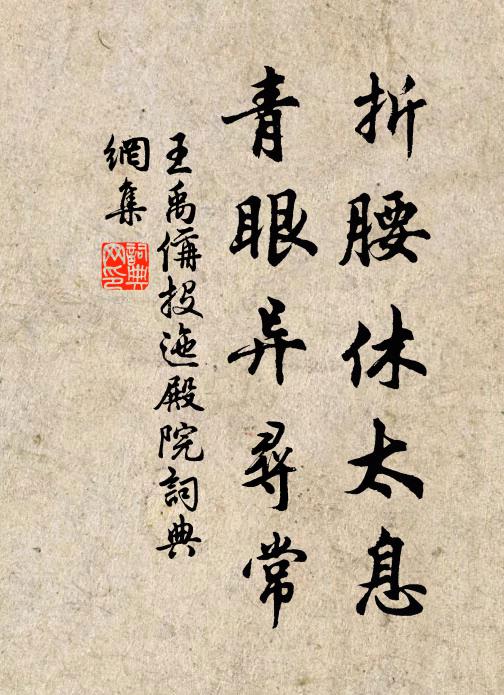 折腰休太息
青眼异尋常
王禹偁投迤殿院詞典
網集
詞典网印